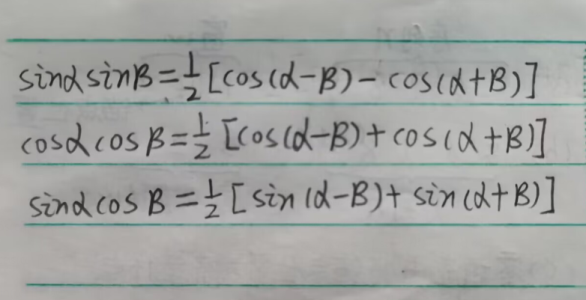 sinαsinβ=½[cos(α-β)-cos(α+β)]
cosαcosβ=½[cos(α-β)+cos(α+β)]
sinαcosβ=½[sin(α-β)+sin(α+β)]